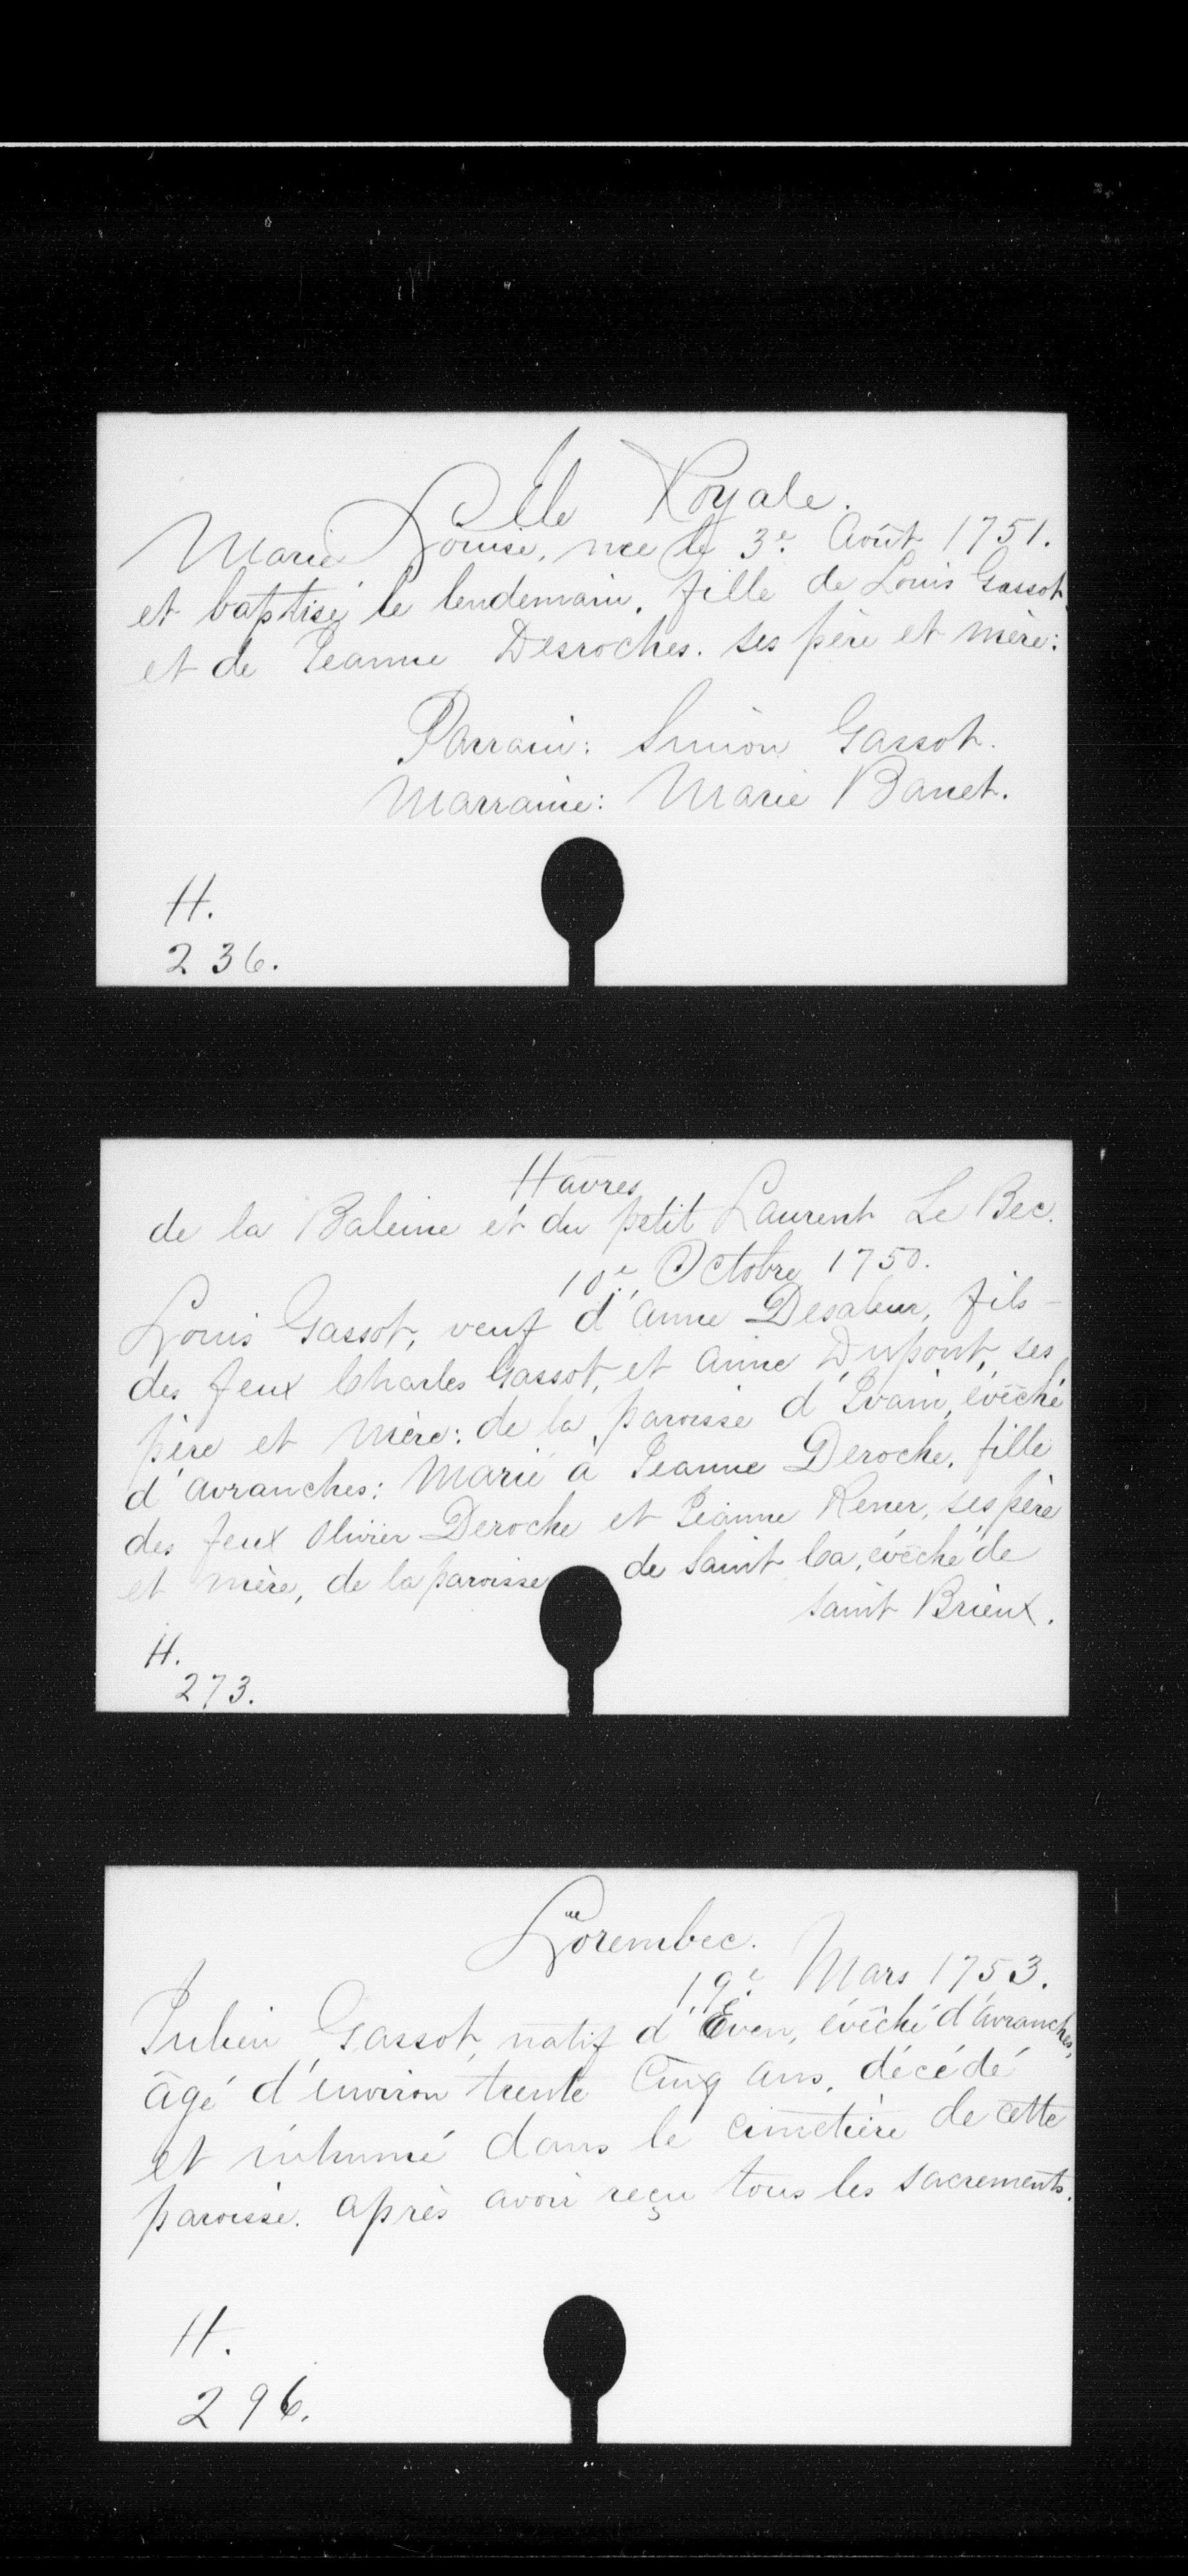 Ile Royale.
Marie Louise, née le 3e Août 1751.
et baptisé le lendemain, fille de Louis Gassot
et de Jeanne Desroches. ses père et mère:
Parrain: Simon Gassot.
Marraine: Marie Banet.
H.
236.
Hâvres
de la Baleine et du petit Laurent Le Bec.
10e Octobre 1750.
Louis Gassot, veuf d'Anne Desaleur, fils
des feux Charles Gassot, et Anne Dupont, ses
père et mère: de la paroisse d'Ivain, évêché
d'Avranches: Marié à Jeanne Deroche, fille
des feux Olivier Deroche et Jeanne Rener, ses père
et mère, de la paroisse de Saint Ca, évêché de
Saint Brieux.
H.
273.
Lorembec.
19e Mars 1753.
Julien Gassot, natif d'Even, évêché d'Avranches,
âgé d'environ trente cinq ans, décédé
et inhumé dans le cimetière de cette
paroisse. après avoir reçu tous les sacrements.
H.
296.